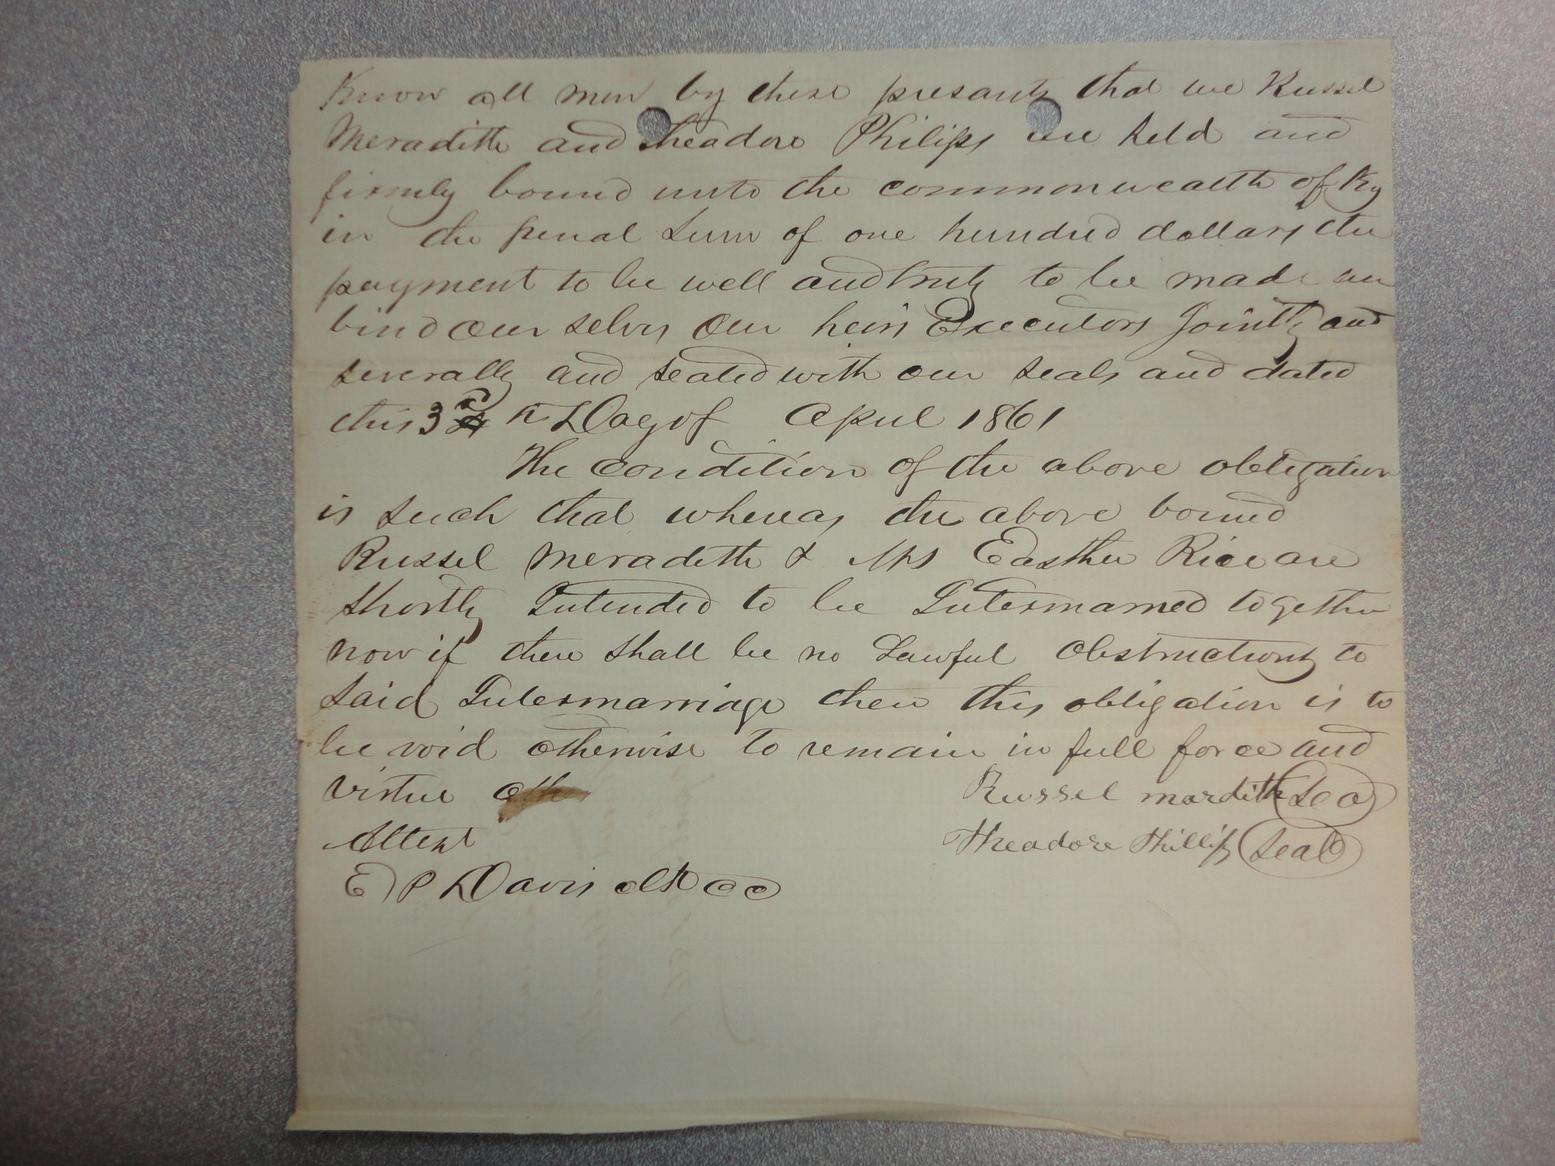 Know all men by these presants that we Russel
Meradith and Theadore Philips are held and
firmly bound unto the commonwealth of Ky
in the penal Sum of one hundred dollars the
payment to be well and truly to be made we
bind our selvs our heirs Executors Jointly and
severally and sealed with our seals and dated
this 3rd Day of April 1861
The condition of the above obligation
is such that whereas the above bound
Russel Meradith & Mrs Easther Rice are
Shortly Intended to be Intermarried together
now if there shall be no Lawful obstructions to
Said Intermarriage then this obligation is to
be void otherwise to remain in full force and
virtue
Russel mardith Sea
Attest
Theadore Phillips Seal
E P Davis clk cc